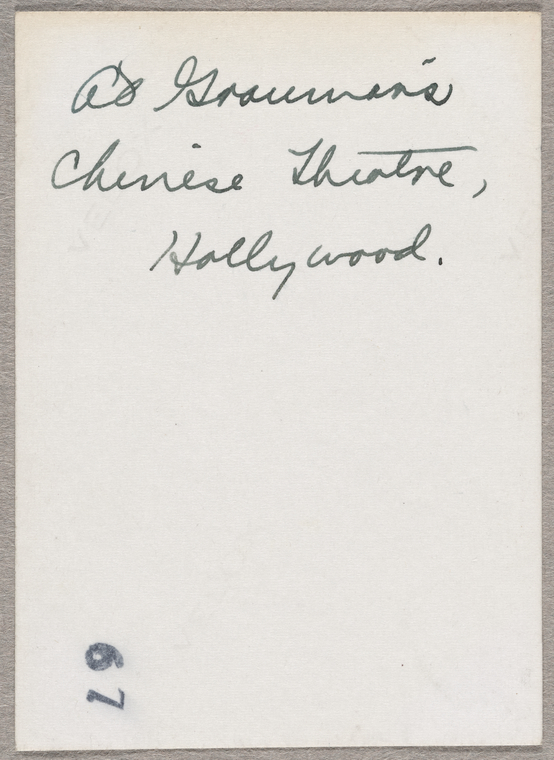 At Grauman's
Chinese Theatre,
Hollywood.
67